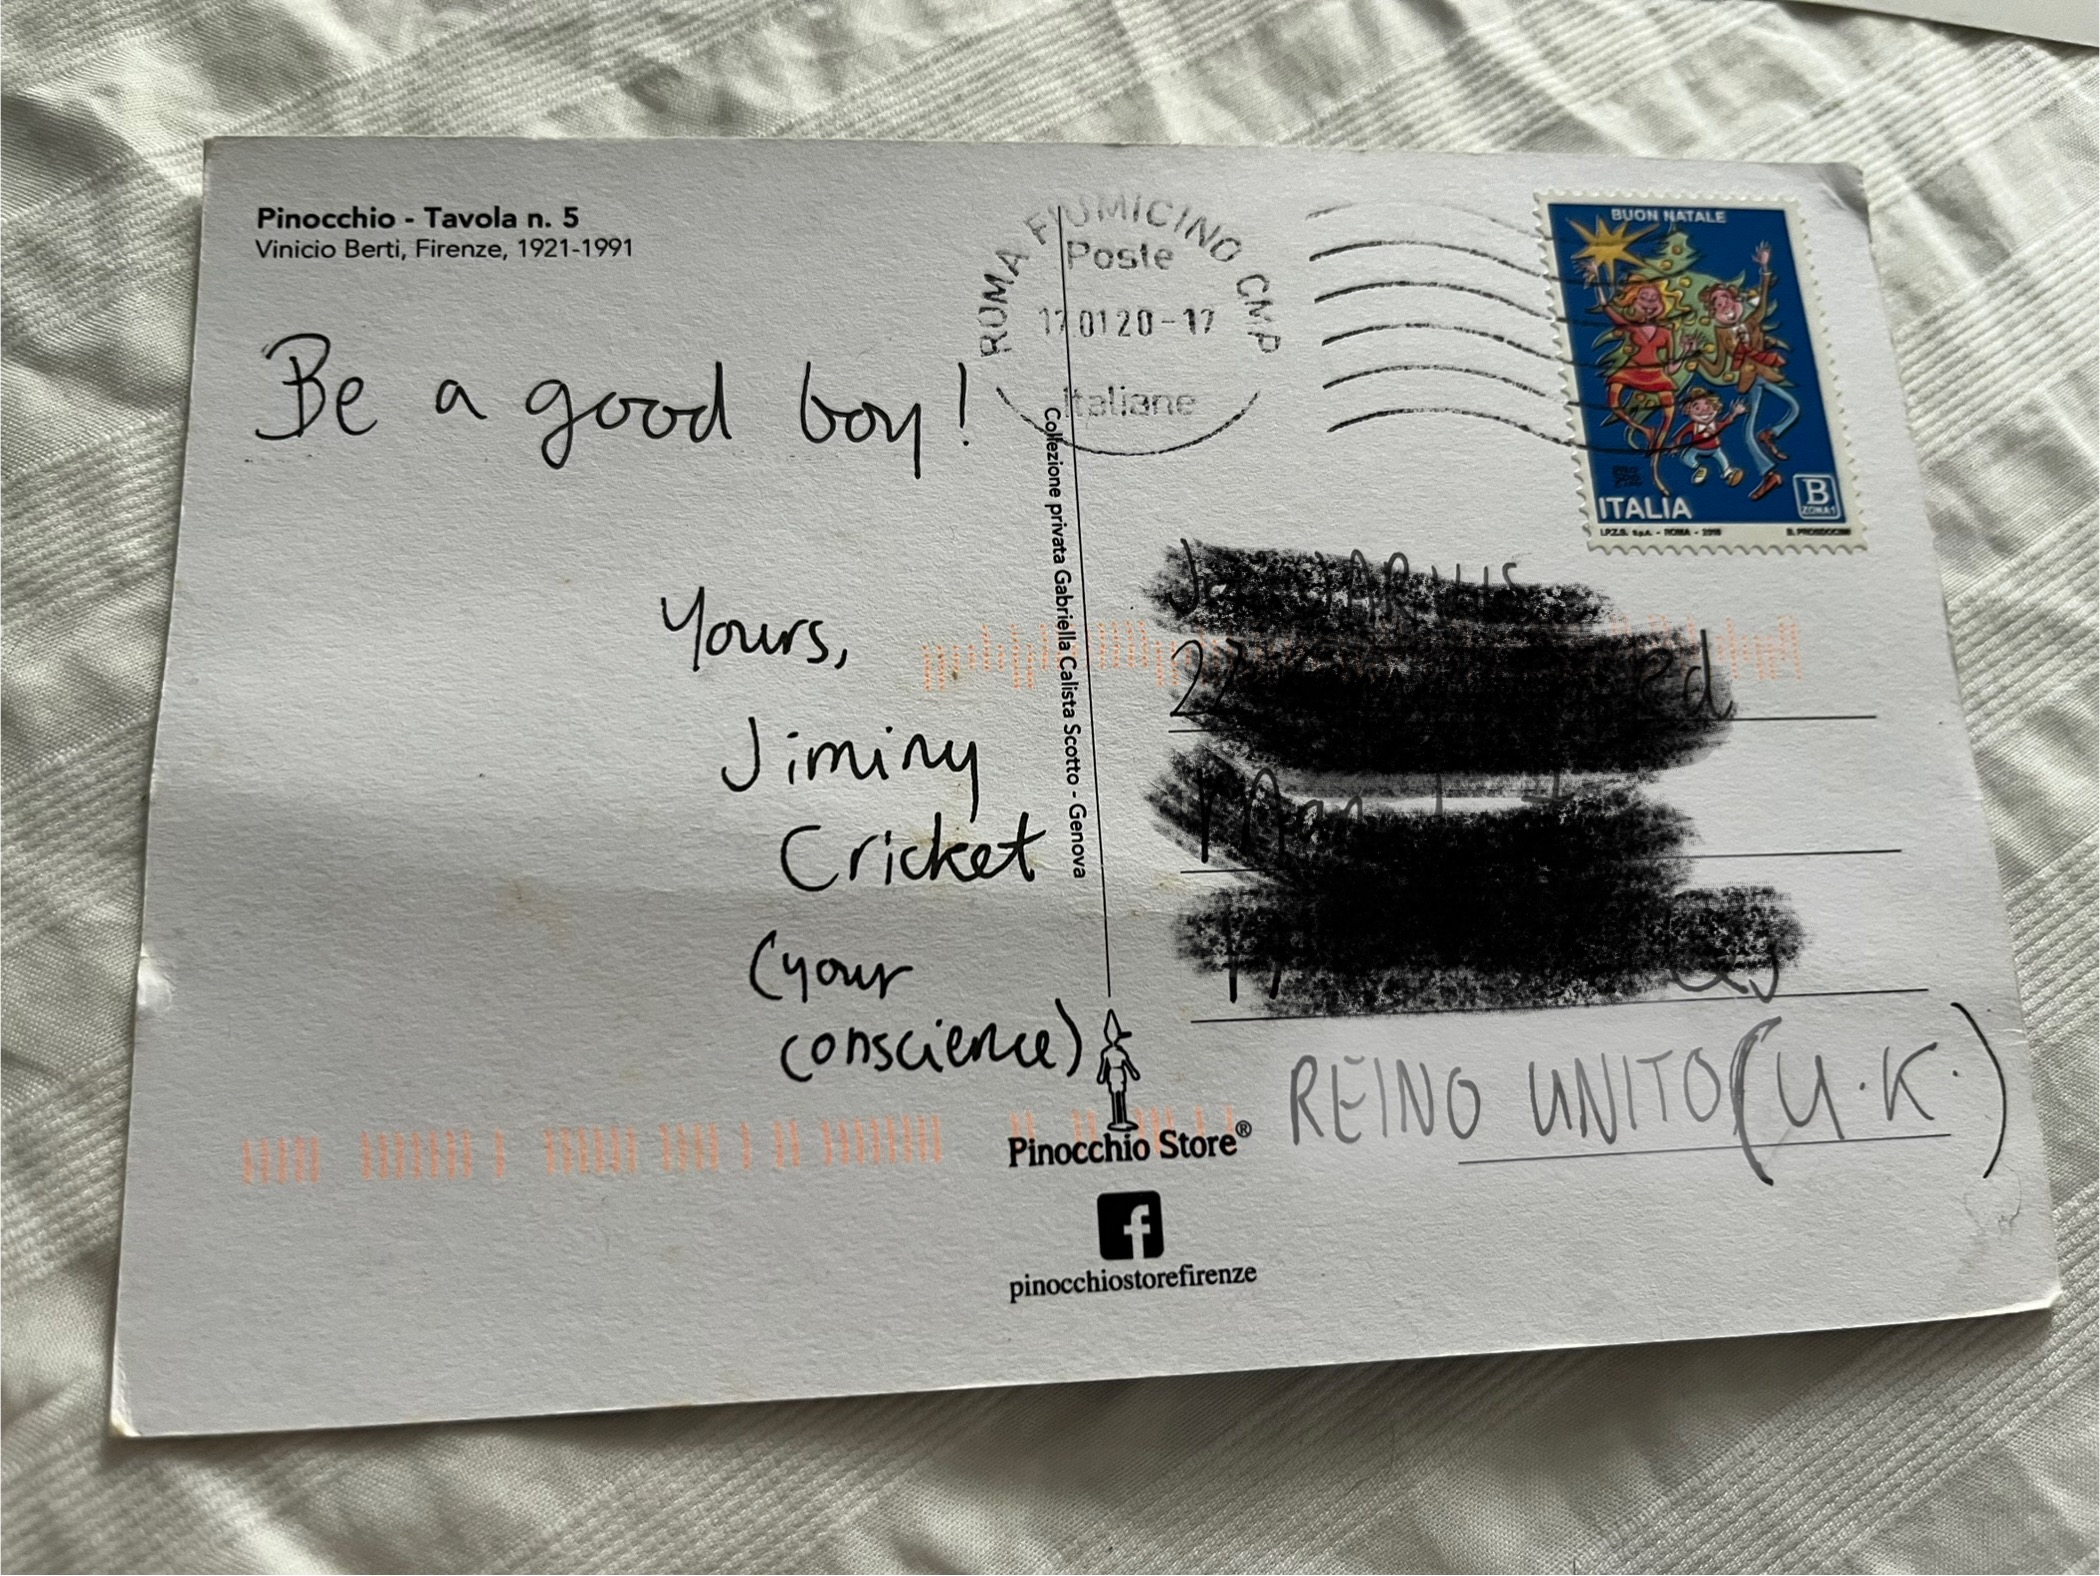 Pinocchio - Tavola n. 5
Vinicio Berti, Firenze, 1921-1991
Be a good boy!
Yours,
Jiminy
Cricket
(your
conscience)
Collezione privata Gabriella Calista Scotto - Genova
Pinocchio Store®
pinocchiostorefirenze
ROMA FIUMICINO CMP
Poste
17 01 20 - 17
italiane
BUON NATALE
ITALIA
B
ZONA 1
I.P.Z.S. S.p.A. - ROMA -
REINO UNITO (U.K.)